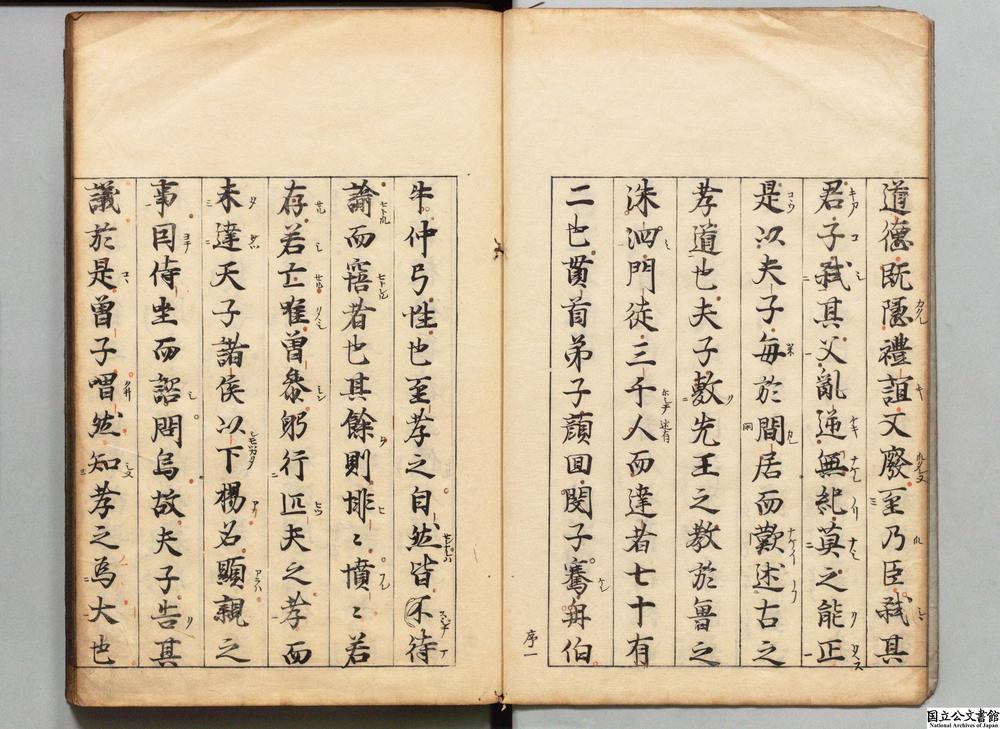 道德既隱禮誼又廢至乃臣弒其
君子弒其父亂逆無紀莫之能正
是以夫子每於閒居而歎述古之
孝道也夫子敷先王之教於魯之
洙泗門徒三千人而達者七十有
二也貫首弟子顏回閔子騫冉伯
序一
牛仲弓性也至孝之自然皆不待
諭而寤者也其餘則悱〻憤〻若
存若亡唯曾參躬行匹夫之孝而
未達天子諸侯以下楊名顯親之
事因侍坐而諮問焉故夫子告其
議於是曾子喟然知孝之爲大也
国立公文書館
National Archives of Japan